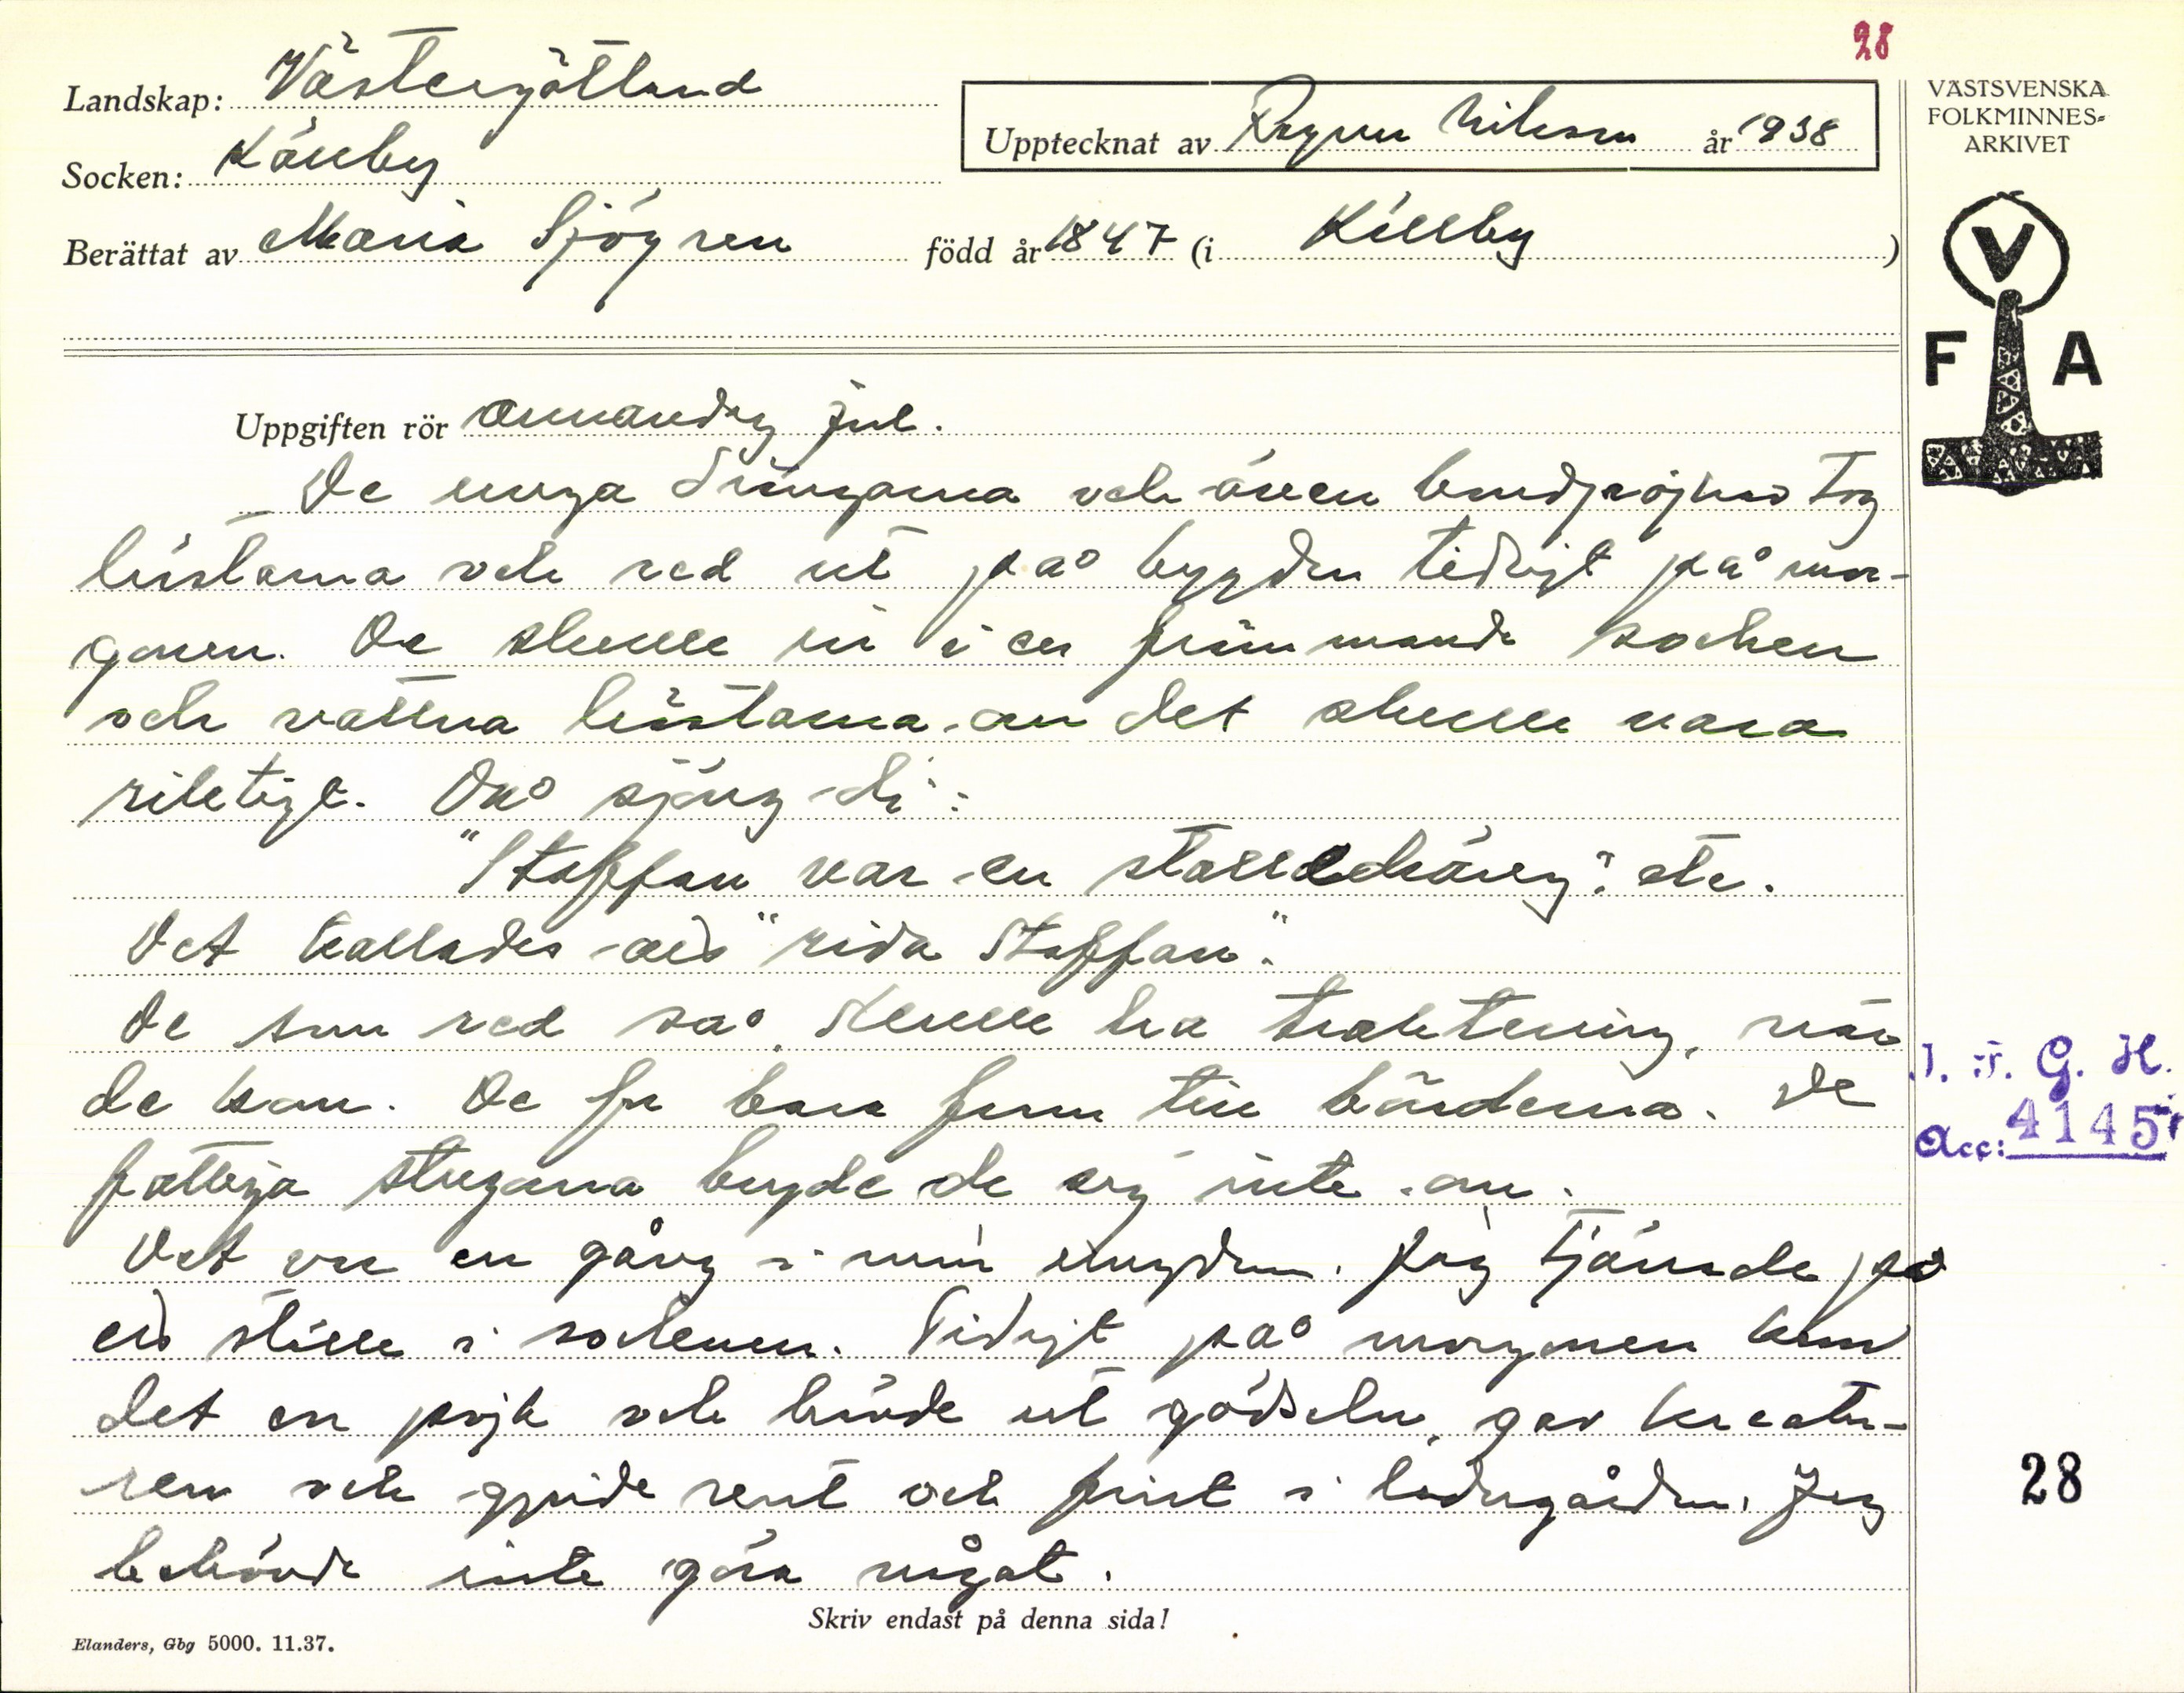 28
Landskap: Västergötland
Socken: Källby
Upptecknat av Ragnar Nilsson år 1938
Berättat av Maria Sjögren född år 1847 (i Källby)
VÄSTSVENSKA
FOLKMINNES-
ARKIVET
V
F A
Uppgiften rör annandag jul.
De unga drängarna och även bondpojkar tog
hästarna och red ut på bygden tidigt på mor-
gonen. De skulle in i en främmande socken
och vattna hästarna om det skulle vara
riktigt. Då sjöng di:
"Staffan var en stalledräng" etc.
Det kallades att "rida Staffan".
De som red så, skulle ha traktering, när
de kom. De for bara fram till bönderna. De
fattiga stugorna brydde de sig inte om.
Det var en gång i min ungdom. Jag tjänade på
ett ställe i socknen. Tidigt på morgonen kom
det en pojk och hävde ut gödseln, gav kreatu-
ren och gjorde rent och fint i ladugården. Jag
behövde inte göra något.
I. F. G. H.
Acc: 4145
28
Skriv endast på denna sida!
Elanders, Gbg 5000. 11.37.